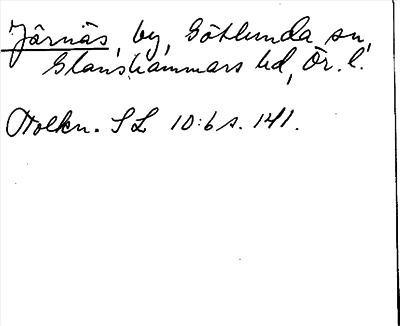 Järnäs, by, Götlunda sn,
Glanshammars hd, Ör. l.
Tolkn. SL 10:6 s. 141.